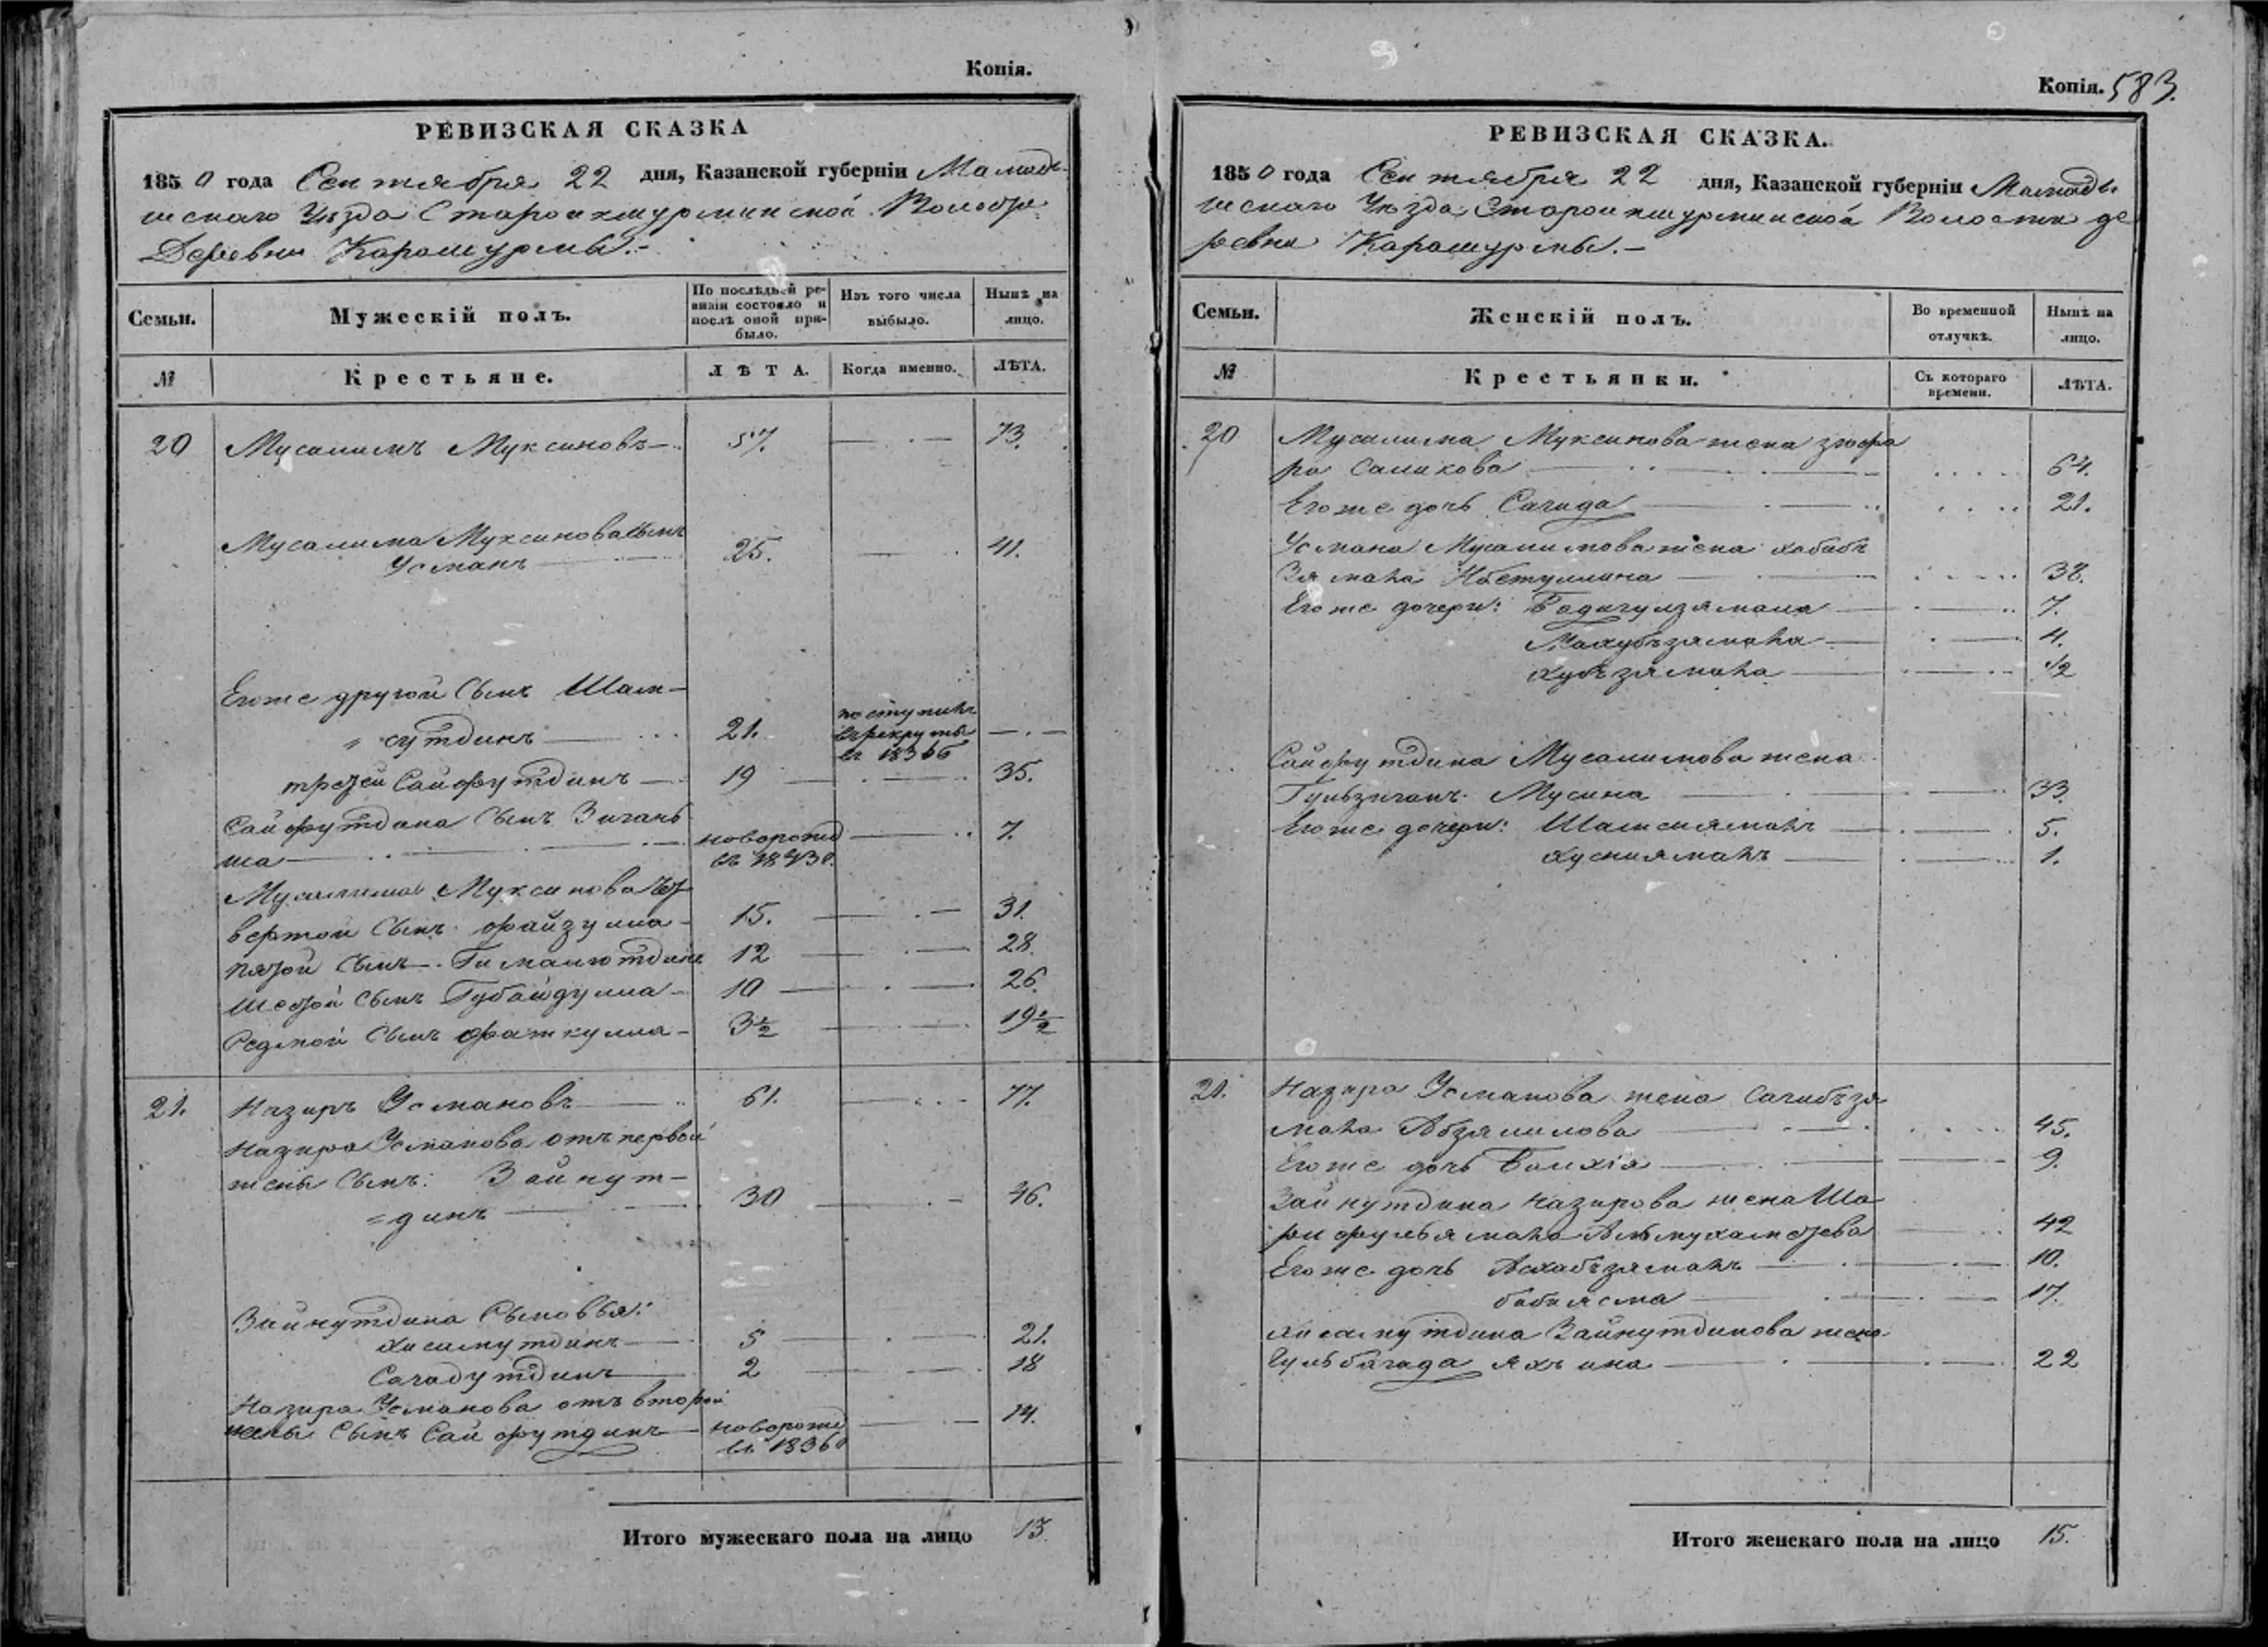 Копія.
РЕВИЗСКАЯ СКАЗКА
1850 года Сентября 22 дня, Казанской губерніи Мамады-
шскаго Уѣзда Староикшурминской Волости
Деревни Карашурмы.-
Семьи. Мужескій полъ. По послѣдней ре-визіи состояло и послѣ оной при-было. Изъ того числа выбыло. Нынѣ на лицо.
№ Крестьяне. ЛѢТА. Когда именно. ЛѢТА.
20 Мусалимъ Муксиновъ 57. 73.
Мусалима Муксинова сынъ
Усманъ 25. 41.
Егоже другой сынъ Шам-
сутдинъ 21. поступилъ
в рекруты
въ 1836
третей Сайфутдинъ 19 35.
Сайфутдина сынъ Зиган
ша новорожд 7.
въ 1843
Мусалима Муксинова чет
вертой сынъ файзулла 15. 31.
пятой сынъ Гималютдинъ 12 28.
шестой сынъ Губайдулла 10 26.
седмой сынъ фаткулла 3½ 19½
21. Назиръ Усмановъ 61. 77.
Назира Усманова отъ первой
жены сынъ: Зайнут-
динъ 30 46.
Зайнутдина сыновья:
Хисамутдинъ 5 21.
Сагадутдинъ 2 18
Назира Усманова отъ второй
жены сынъ Сайфутдинъ новорожд 14.
въ 1836
Итого мужескаго пола на лицо 13
Копія. 583.
РЕВИЗСКАЯ СКАЗКА.
1850 года Сентября 22 дня, Казанской губерніи Мамады-
шскаго Уѣзда Староикшурминской Волости де
ревни Карашурмы.-
Семьи. Женскій полъ. Во временной отлучкѣ. Нынѣ на лицо.
№ Крестьянки. Съ котораго времени. ЛѢТА.
20 Мусалима Муксинова жена зюфа
ра Саликова 64.
Егоже дочь Сагида 21.
Усмана Мусалимова жена хабибъ
Зямала 38.
Егоже дочери: Бадигулзямала 7.
Махубъзямала 4.
хубъзямала ½
Сайфутдина Мусалимова жена
Гульзиганъ Мусина 33.
Егоже дочери: Шамсиямалъ 5.
Хусниямалъ 1.
21. Назира Усманова жена Сагибъзя
мала Абзялилова 45.
Егоже дочь Балхія 9.
Зайнутдина Назирова жена Ша
рифульямала Альмухаметева 42
Егоже дочь Асхабъзямалъ 10.
бибиясма 17.
Хисамутдина Зайнутдинова жена
Гульбагида яхъина 22
Итого женскаго пола на лицо 15.